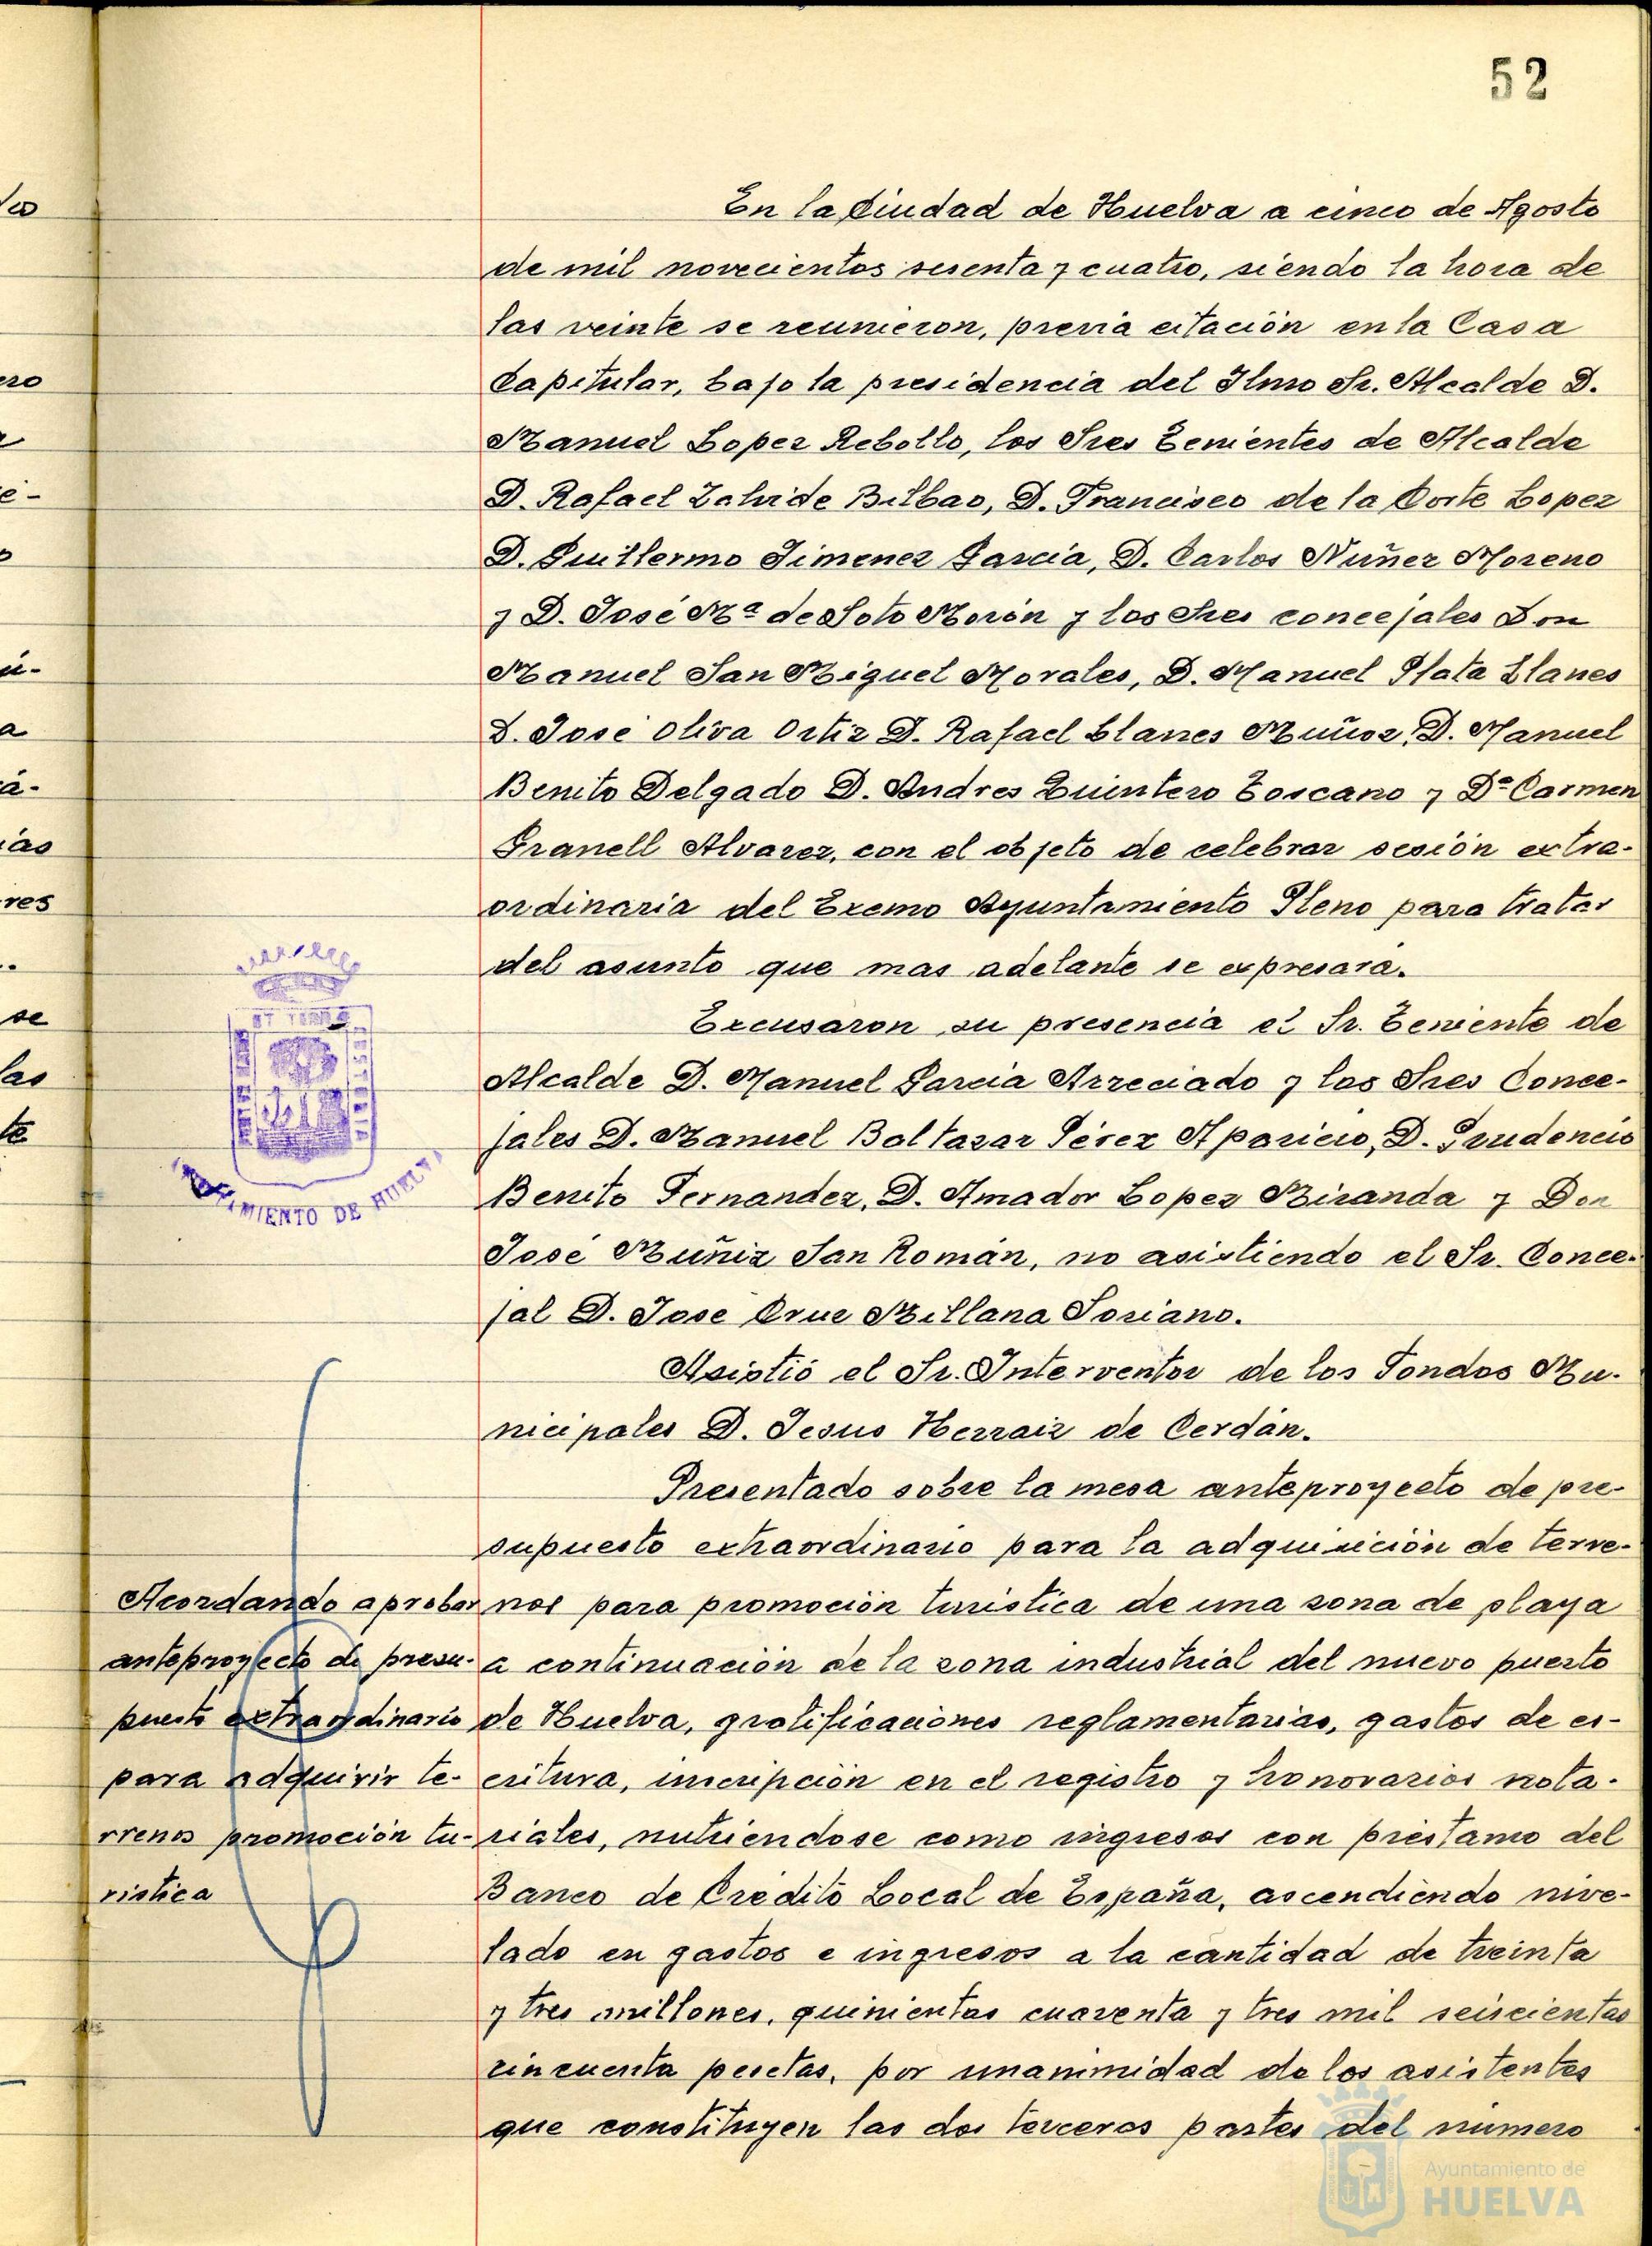 52
En la Ciudad de Huelva a cinco de Agosto
de mil novecientos sesenta y cuatro, siendo la hora de
las veinte se reunieron, previa citación en la Casa
Capitular, bajo la presidencia del Ilmo Sr. Alcalde D.
Manuel Lopez Rebollo, los Sres Tenientes de Alcalde
D. Rafael Zalvide Bilbao, D. Francisco de la Corte Lopez
D. Guillermo Jimenez Garcia, D. Carlos Nuñez Moreno
y D. José Mª de Soto Morón y los Sres concejales Don
Manuel San Miguel Morales, D. Manuel Plata Llanes
D. José Oliva Ortiz D. Rafael Llanes Muñoz, D. Manuel
Benito Delgado D. Andres Quintero Toscano y Dª Carmen
Granell Alvarez, con el objeto de celebrar sesión extra-
ordinaria del Excmo Ayuntamiento Pleno para tratar
del asunto que mas adelante se expresará.
Excusaron su presencia el Sr. Teniente de
Alcalde D. Manuel Garcia Arreciado y los Sres Conce-
jales D. Manuel Baltasar Pérez Aparicio, D. Prudencio
Benito Fernandez, D. Amador Lopez Miranda y Don
José Muñiz San Román, no asistiendo el Sr. Conce-
jal D. Jose Cruz Millana Soriano.
Asistió el Sr. Interventor de los Fondos Mu-
nicipales D. Jesus Herraiz de Cerdán.
Presentado sobre la mesa anteproyecto de pre-
supuesto extraordinario para la adquisición de terre-
nos para promoción turistica de una zona de playa
a continuación de la zona industrial del nuevo puerto
de Huelva, gratificaciones reglamentarias, gastos de es-
critura, inscripción en el registro y honorarios nota-
riales, nutriendose como ingresos con préstamo del
Banco de Crédito Local de España, ascendiendo nive-
lado en gastos e ingresos a la cantidad de treinta
y tres millones, quinientas cuarenta y tres mil seiscientas
cincuenta pesetas, por unanimidad de los asistentes
que constituyen las dos terceras partes del número
Acordando aprobar
anteproyecto de presu-
puesto extraordinario
para adquirir te-
rrenos promoción tu-
ristica
AYUNTAMIENTO DE HUELVA
Ayuntamiento de
HUELVA
res
se
las
te